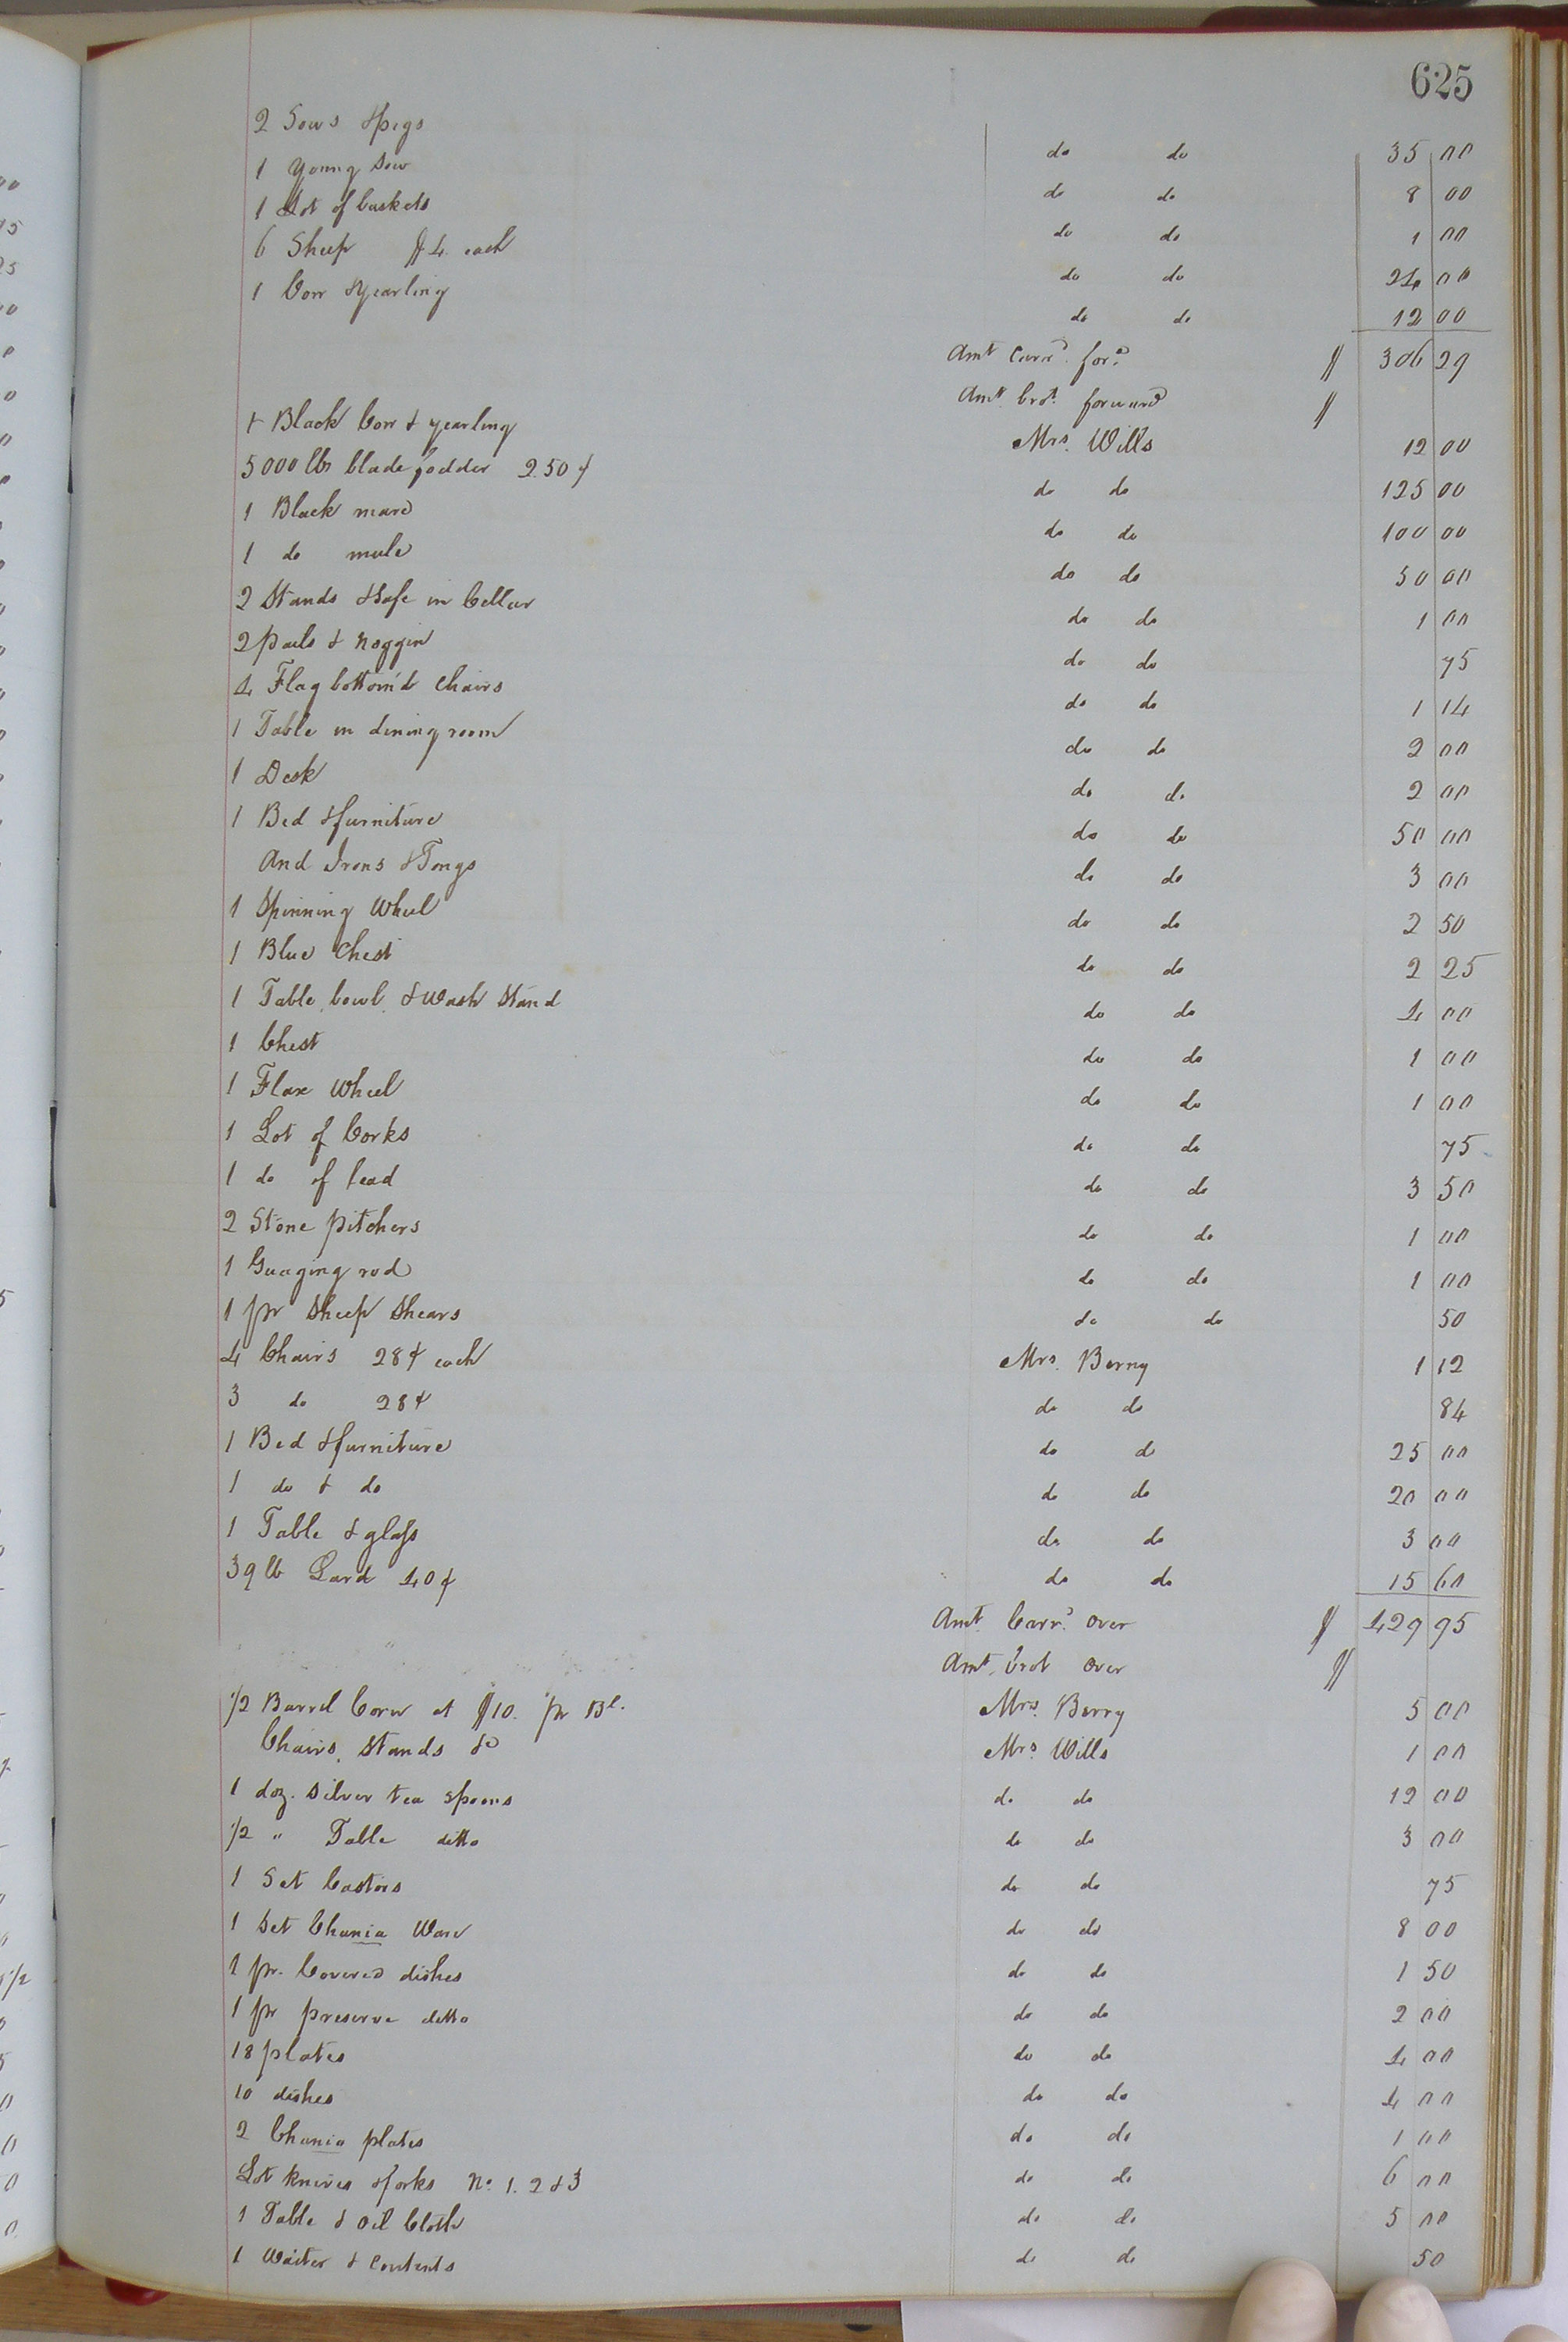 625
2 Sows & pigs do do 35 00
1 Young Sow do do 8 00
1 Lot of baskets do do 1 00
6 Sheep $4. each do do 24 00
1 Cow & yearling do do 12 00
Amt Carrd. ford. $ 306 29
Amt. brot. forward $
1 Black Cow & yearling Mrs. Wills 12 00
5000 lbs blade fodder 2.50 ¢ do do 125 00
1 Black mare do do 100 00
1 do mule do do 50 00
2 Stands & Safe in Cellar do do 1 00
2 pails & noggin do do 75
4 Flag bottom'd Chairs do do 1 14
1 Table in dining room do do 2 00
1 Desk do do 2 00
1 Bed & furniture do do 50 00
And Irons & Tongs do do 3 00
1 Spinning Wheel do do 2 50
1 Blue Chest do do 2 25
1 Table, bowl, & Wash Stand do do 4 00
1 Chest do do 1 00
1 Flax Wheel do do 1 00
1 Lot of Corks do do 75
1 do of lead do do 3 50
2 Stone pitchers do do 1 00
1 Guaging rod do do 1 00
1 pr Sheep Shears do do 50
4 Chairs 28¢ each Mrs. Berry 1 12
3 do 28¢ do do 84
1 Bed & furniture do do 25 00
1 do & do do do 20 00
1 Table & glass do do 3 00
39 lb Lard 40¢ do do 15 60
Amt. Carrd. Over $ 429 95
Amt. brot Over $
1/2 Barrel Corn at $10. pr Bl. Mrs. Berry 5 00
Chairs, Stands &c Mrs. Wills 1 00
1 doz. Silver tea Spoons do do 12 00
1/2 " Table ditto do do 3 00
1 Set Castors do do 75
1 Set Chania Ware do do 8 00
1 pr. Covered dishes do do 1 50
1 pr preserve ditto do do 2 00
18 plates do do 4 00
10 dishes do do 4 00
2 Chania plates do do 1 00
Lot knives & forks No. 1. 2 & 3 do do 6 00
1 Table & Oil Cloth do do 5 00
1 Waiter & Contents do do 50